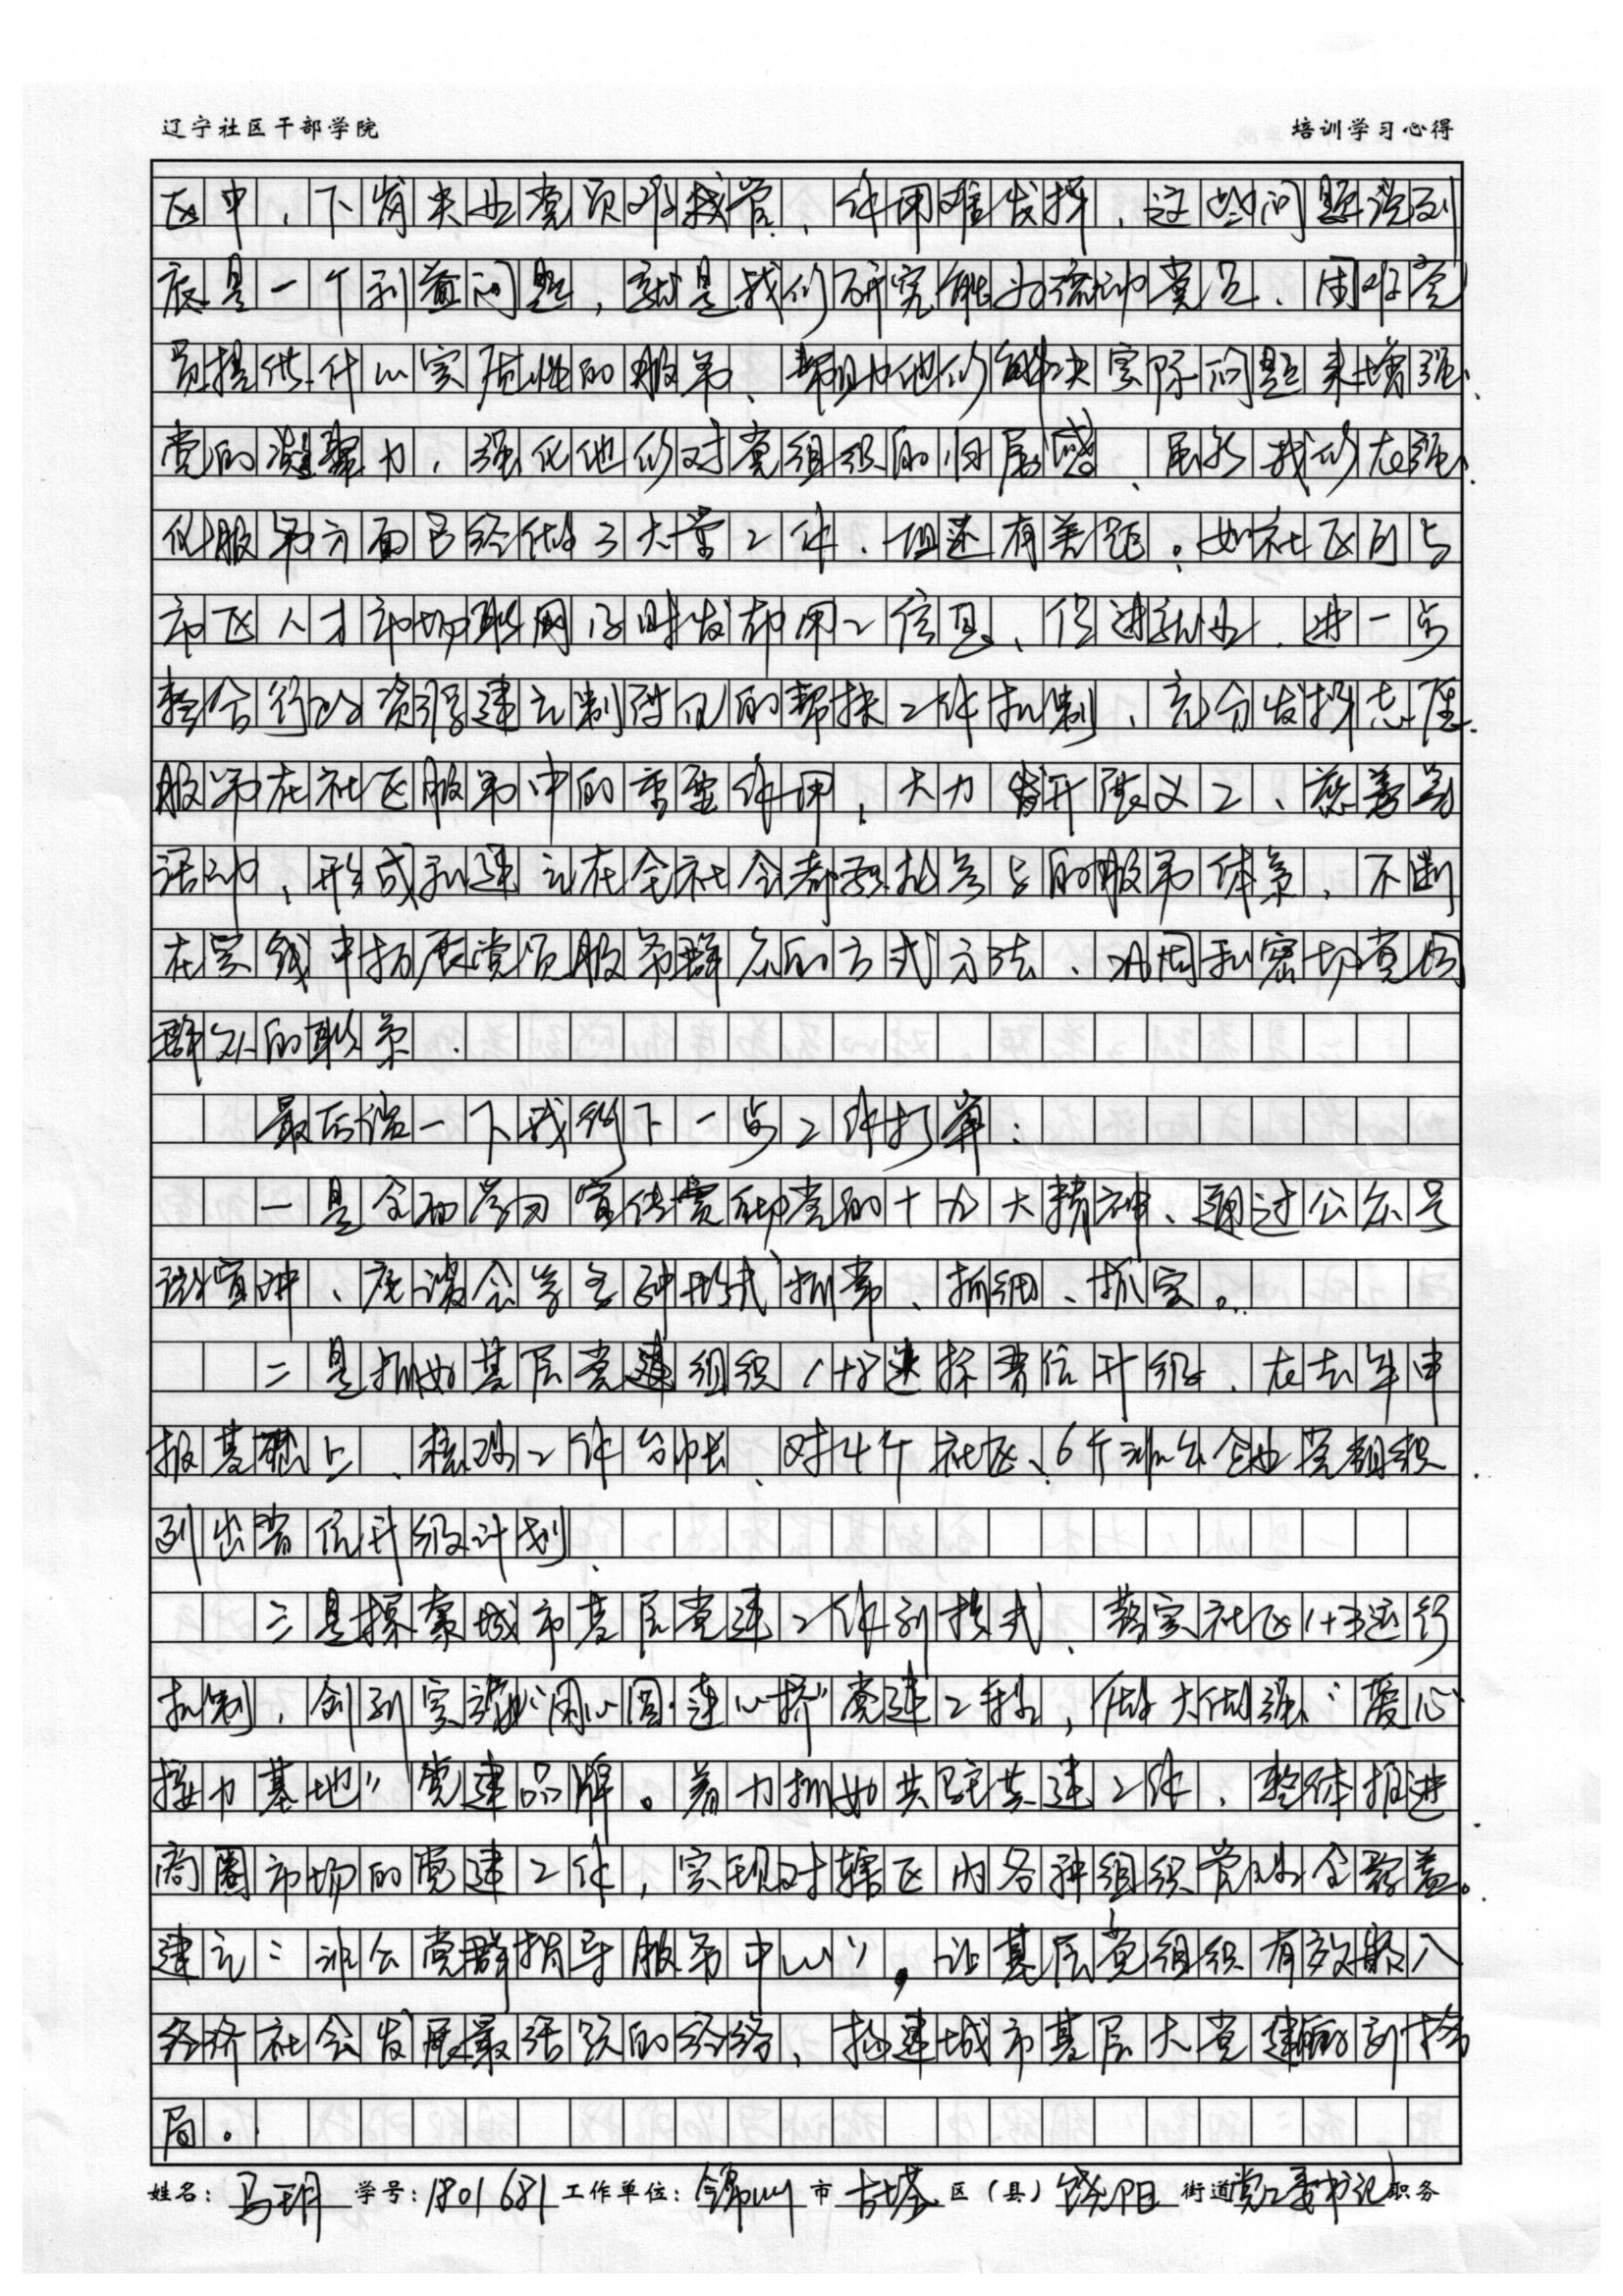 辽宁社区干部学院 培训学习心得
区中,下岗失业党员难接管、作用难发挥,这些问题说到
底是一个利益问题,就是我们研究能为流动党员、困难党
员提供什么实质性的服务、帮助他们解决实际问题来增强
党的凝聚力,强化他们对党组织的归属感、虽然我们在强
化服务方面已经做了大量工作,但还有差距。如社区间与
市区人才市场联网及时发布用工信息、促进就业,进一步
整合行政资源建立制度化的帮扶工作机制、充分发挥志愿
服务在社区服务中的重要作用,大力开展义工、慈善等
活动,形成和建立在全社会都予以参与的服务体系,不断
在实践中拓展党员服务群众的方式方法、巩固和密切党同
群众的联系.
最后说一下我街下一步工作打算:
一是全面学习宣传贯彻党的十九大精神、通过公众号
宣讲、座谈会等多种形式抓常、抓细、抓实。
二是抓好基层党建组织 达标晋位升级、在去年申
报基础上、核对工作台帐、对4个社区、6个非公企业党组织
列出晋位升级计划.
三是探索城市基层党建工作新模式、落实社区1+3运行
机制,创新实施"同心圆·连心桥"党建工程,做大做强"爱心
接力基地"党建品牌。着力抓好共驻共建工作,整体推进
商圈市场的党建工作,实现对辖区内各种组织党建全覆盖。
建立"非公党群指导服务中心",让基层党组织有效嵌入
经济社会发展最活跃的经络,构建城市基层大党建的新格
局。
姓名:马玥 学号:1801681 工作单位:锦州市古塔区(县)饶阳街道党工委书记职务